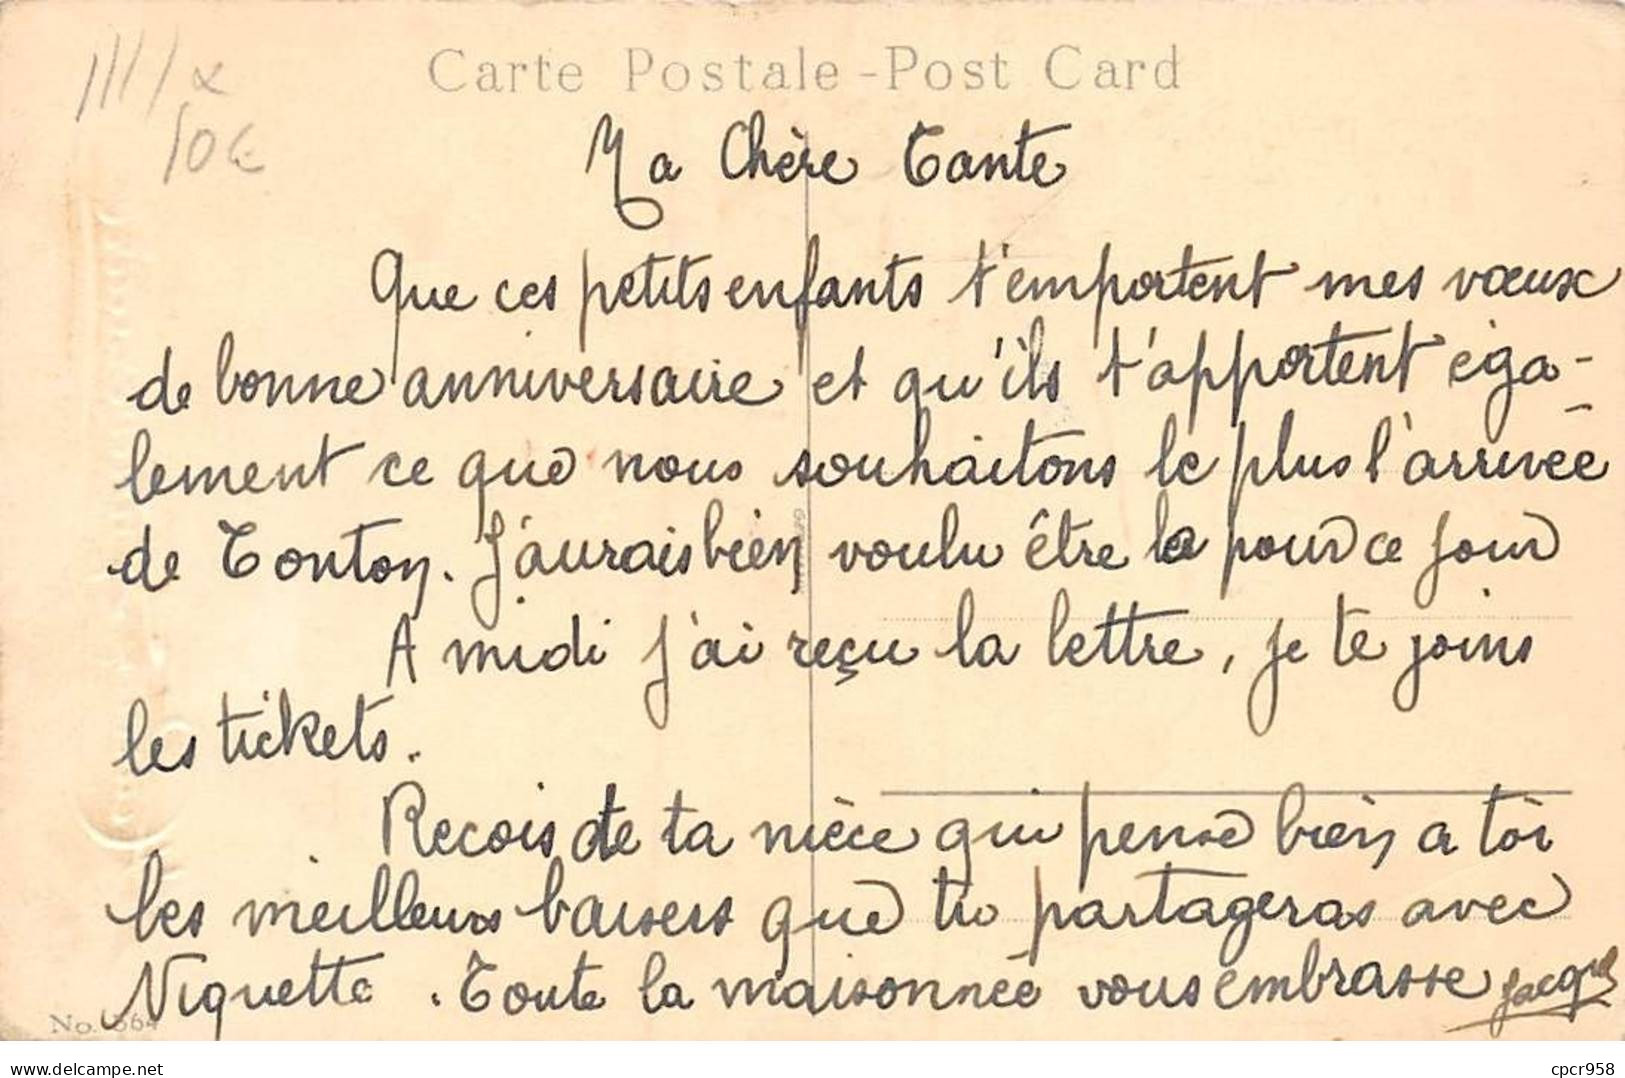 Carte Postale - Post Card
10€
Ma Chère Tante
Que ces petits enfants t'emportent mes vœux
de bonne anniversaire et qu'ils t'apportent éga-
lement ce que nous souhaitons le plus l'arrivée
de Tonton. J'aurais bien voulu être la pour ce jour
A midi j'ai reçu la lettre, je te joins
les tickets.
Recois de ta nièce qui pense bien a toi
les meilleurs baisers que tu partageras avec
Niquette. Toute la maisonnée vous embrasse
No. 564
www.delcampe.net
cpcr958